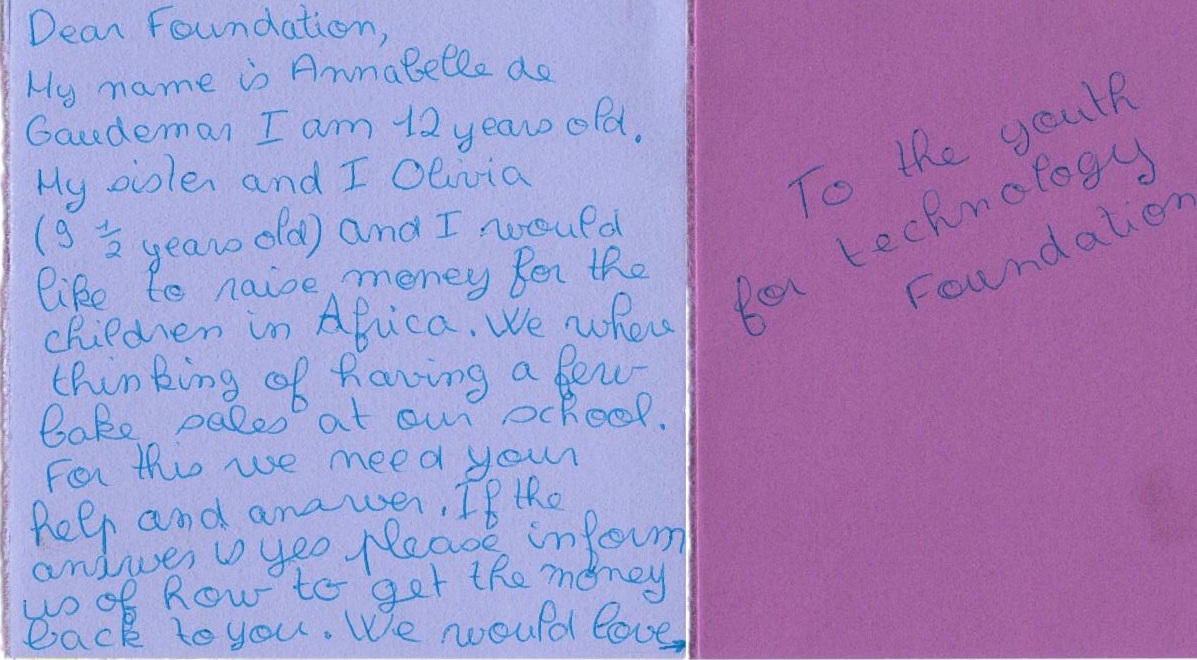 Dear Foundation,
My name is Annabelle de
Gaudemar I am 12 years old.
My sister and I Olivia
(9 ½ years old) and I would
like to raise money for the
children in Africa. We where
thinking of having a few
bake sales at our school.
For this we need your
help and answer. If the
answer is yes please inform
us of how to get the money
back to you. We would love
To the youth
for technology
Foundation